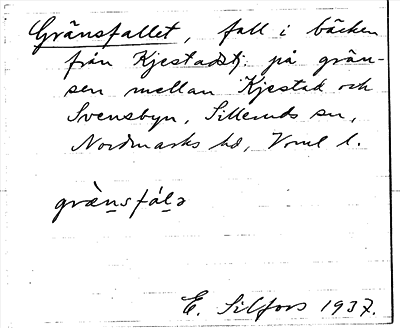 Gränsfallet, fall i bäcken
från Kjestadstj. på grän-
sen mellan Kjestad och
Svensbyn, Silleruds sn,
Nordmarks hd, Verml l.
gräns fál̯ə
E. Silfors 1937.